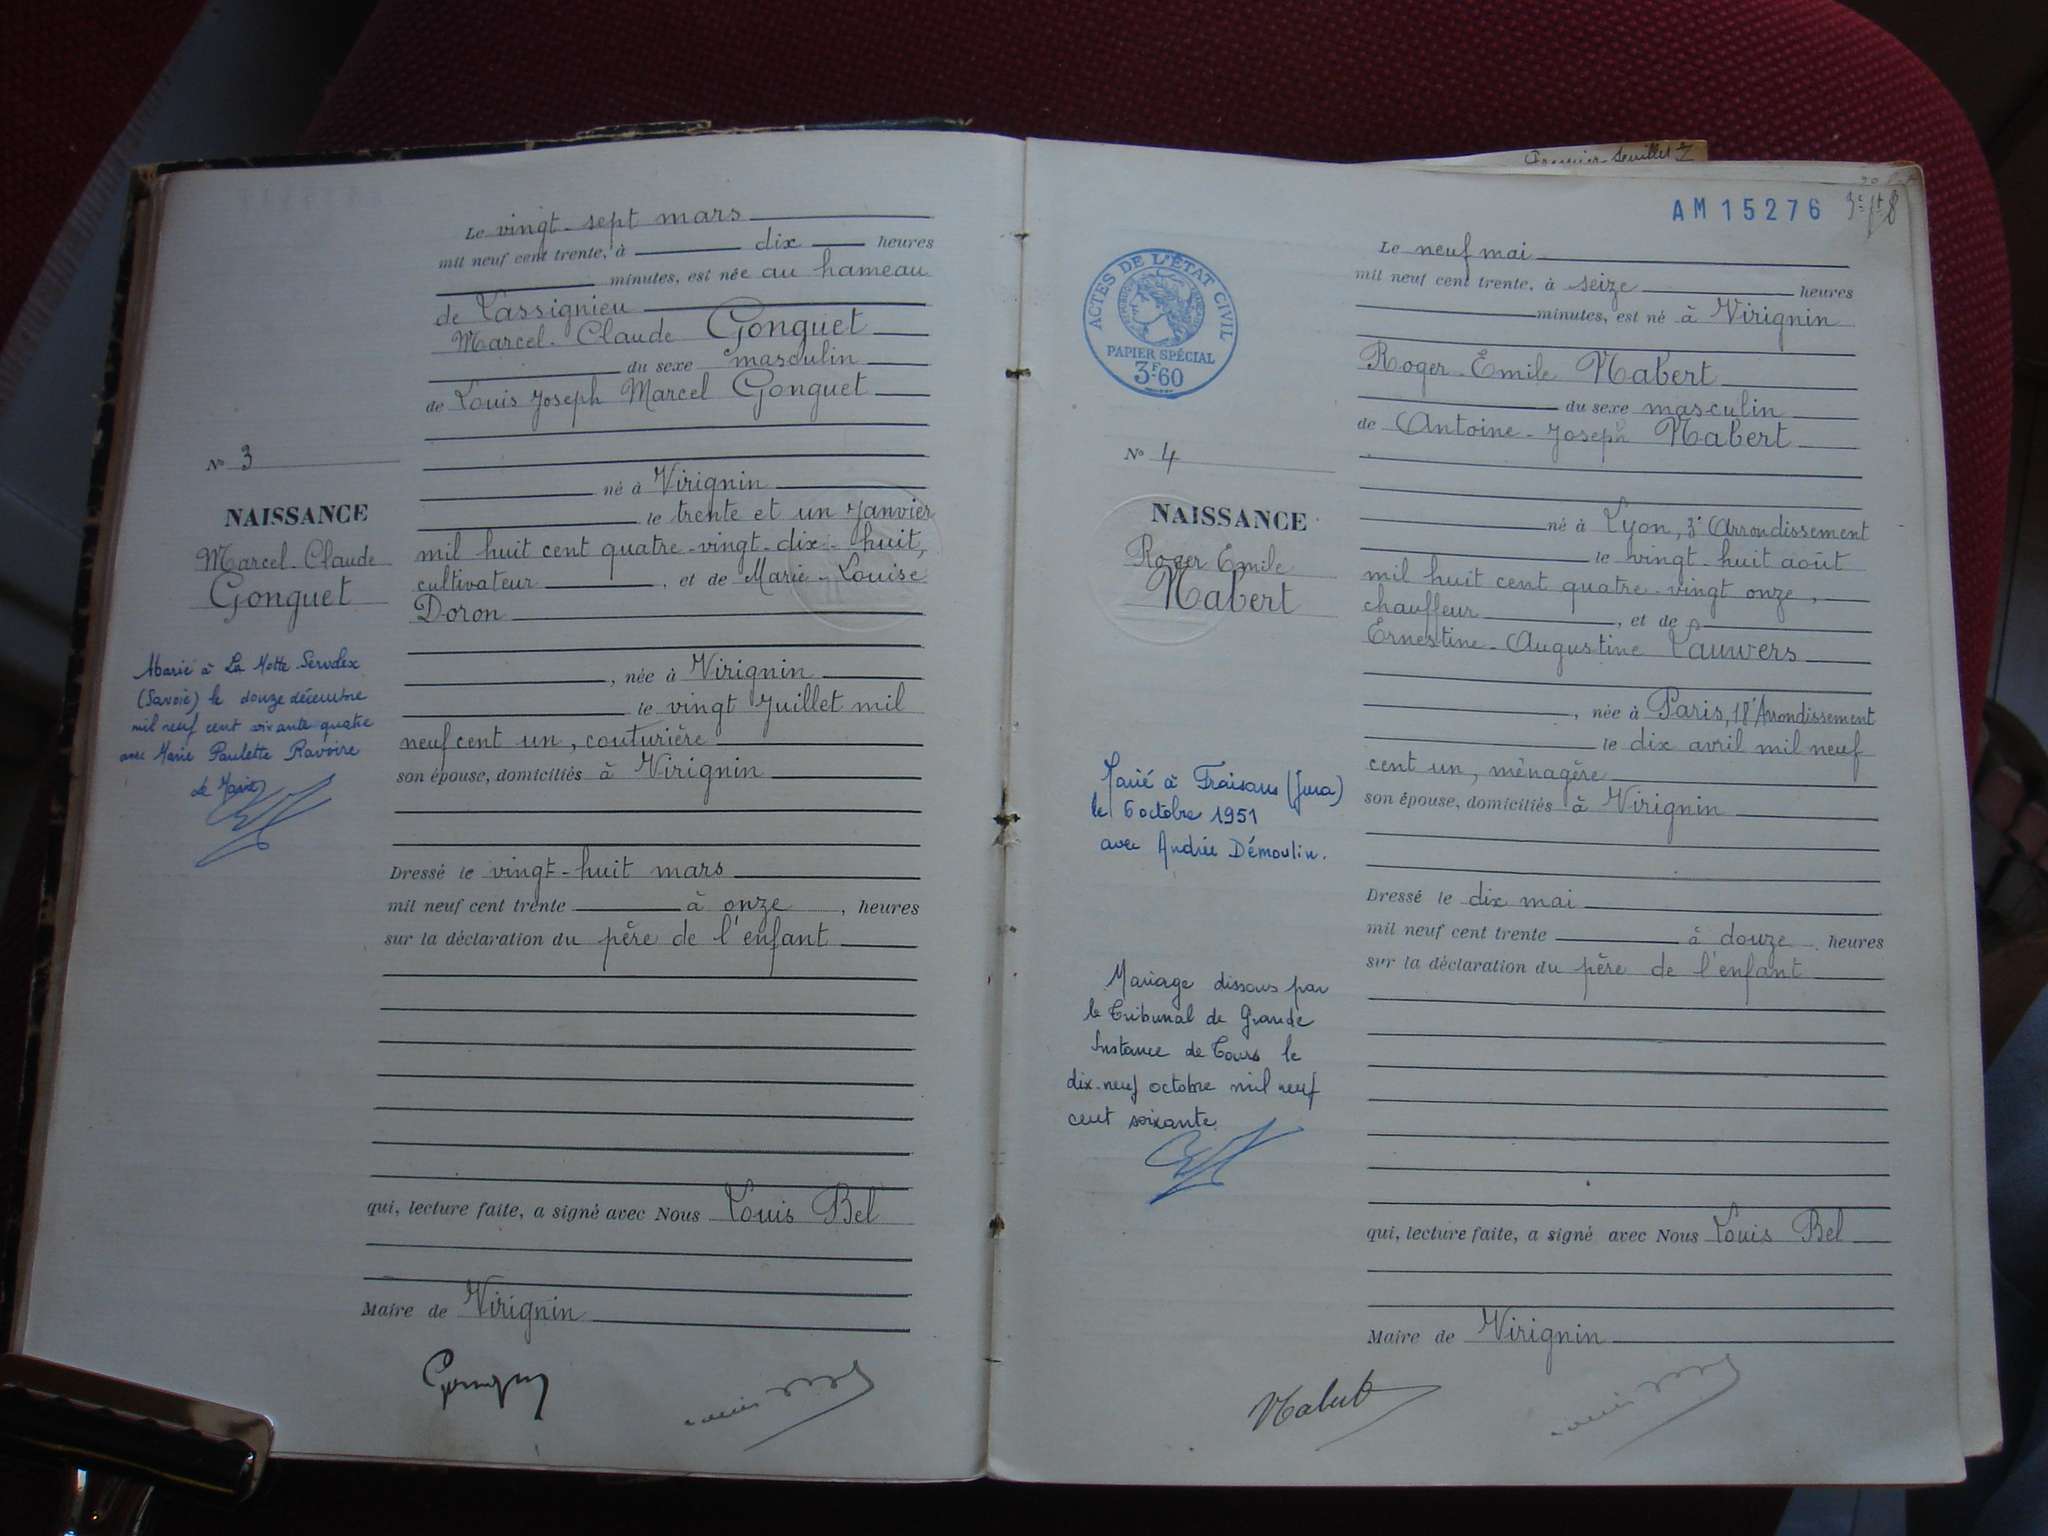 Le vingt-sept mars
mil neuf cent trente, à dix heures
minutes, est née au hameau
de Lassignieu
Marcel-Claude Gonguet
du sexe masculin
de Louis Joseph Marcel Gonguet
né à Virignin
le trente et un Janvier
mil huit cent quatre-vingt-dix-huit,
cultivateur, et de Marie-Louise
Doron
, née à Virignin
le vingt Juillet mil
neuf cent un, couturière
son épouse, domiciliés à Virignin
Dressé le vingt-huit mars
mil neuf cent trente à onze, heures
sur la déclaration du père de l'enfant
qui, lecture faite, a signé avec Nous Louis Bel
Maire de Virignin
N° 3
NAISSANCE
Marcel-Claude
Gonguet
Marié à La Motte Servolex
(Savoie) le douze décembre
mil neuf cent soixante quatre
avec Marie Paulette Ravoire
Le Maire
Premier feuillet
AM15276
ACTES DE L'ÉTAT CIVIL
PAPIER SPÉCIAL
3F.60
Le neuf mai
mil neuf cent trente, à seize heures
minutes, est né à Virignin
Roger-Emile Nabert
du sexe masculin
de Antoine-Joseph Nabert
né à Lyon, 3e Arrondissement
le vingt-huit août
mil huit cent quatre-vingt onze,
chauffeur, et de
Ernestine-Augustine Lauwers
, née à Paris, 18e Arrondissement
le dix avril mil neuf
cent un, ménagère
son épouse, domiciliés à Virignin
Dressé le dix mai
mil neuf cent trente à douze heures
sur la déclaration du père de l'enfant
qui, lecture faite, a signé avec Nous Louis Bel
Maire de Virignin
Nabert
N° 4
NAISSANCE
Roger Emile
Nabert
Marié à Fraisans (Jura)
le 6 octobre 1951
avec Andrée Démoulin.
Mariage dissous par
le Tribunal de Grande
Instance de Tours le
dix-neuf octobre mil neuf
cent soixante.